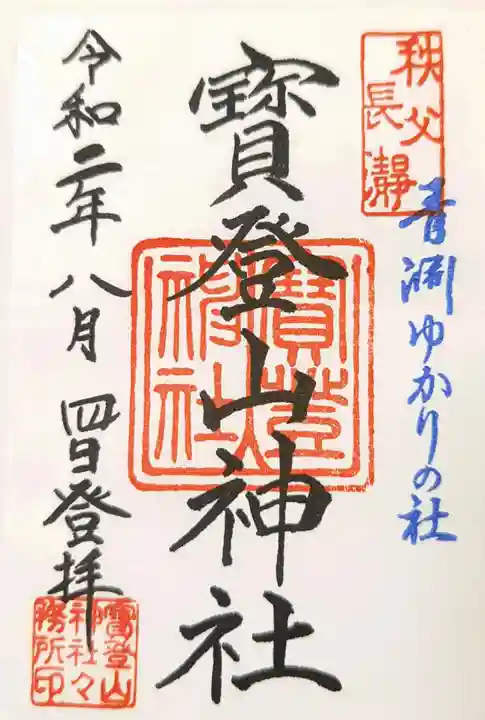 秩父
長瀞
青淵ゆかりの社
寳登山神社
寳登山
神社
令和二年八月四日登拝
寳登山
神社々
務所印